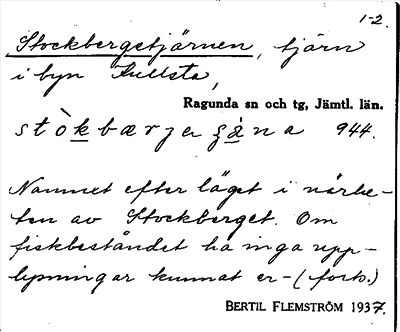 1-2.
Stockbergstjärnen, tjärn
i byn Kullsta,
Ragunda sn och tg, Jämtl. län.
944.
Namnet efter läget i närhe-
ten av Stockberget. Om
fiskbeståndet ha inga upp-
lysningar kunnat er- (forts.)
BERTIL FLEMSTRÖM 1937.